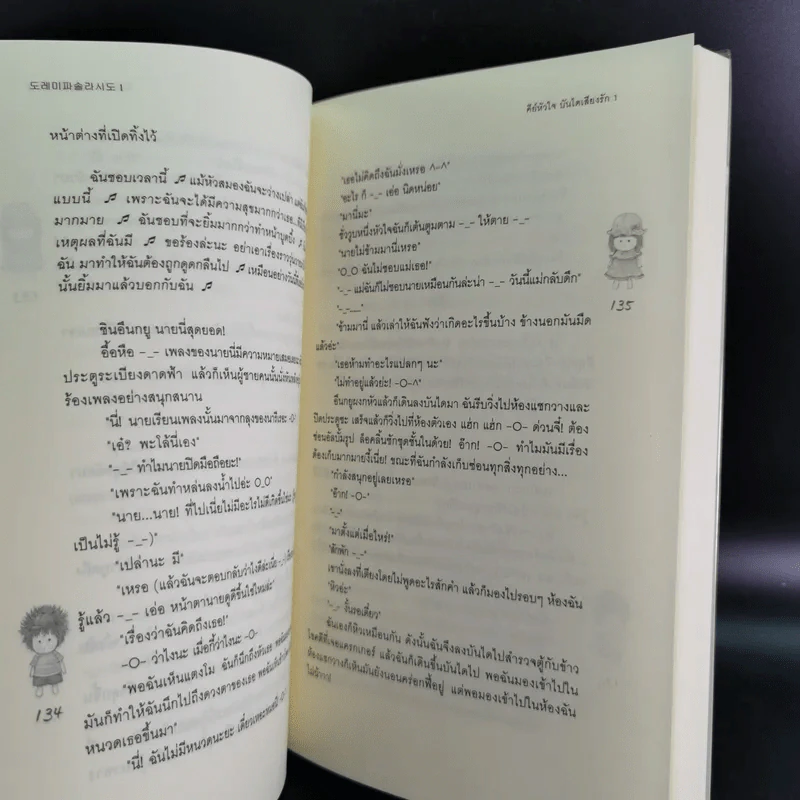 도레미파솔라시도 1
หน้าต่างที่เปิดทิ้งไว้
ฉันชอบเวลานี้ ♬ แม้หัวสมองฉันจะว่างเปล่า
แบบนี้ ♬ เพราะฉันจะได้มีความสุขมากกว่าเธอ...
มากมาย ♬ ฉันชอบที่จะยิ้มมากกว่าทำหน้าบูดบึ้ง ♬
เหตุผลที่ฉันมี ♬ ขอร้องล่ะนะ อย่าเอาเรื่องราว
ฉัน มาทำให้ฉันต้องถูกดูดกลืนไป ♬ เหมือนอย่างวัน
นั้นยิ้มมาแล้วบอกกับฉัน ♬
ชินอึนกยู นายนี่สุดยอด!
อื้อหือ -_- เพลงของนายนี่มีความหมายเสมอ
ประตูระเบียงดาดฟ้า แล้วก็เห็นผู้ชายคนนั้นนั่ง
ร้องเพลงอย่างสนุกสนาน
"นี่! นายเรียนเพลงนั้นมาจากลุงของนาทีเธอะ -O-
"เอ๋? พะโล้นี่เอง"
"-_- ทำไมนายปิดมือถือยะ!"
"เพราะฉันทำหล่นลงน้ำไปอ่ะ O_O"
"นาย...นาย! ที่ไปเนี่ยไม่มีอะไรไม่ดีเกิดขึ้นใช่มะ
เป็นไม่รู้ -_-)"
"เปล่านะ มี"
"เหรอ (แล้วฉันจะตอบกลับว่าไงดีล่ะเนี่ย -_-)
รู้แล้ว -_- เอ่อ หน้าตานายดูดีขึ้นใช่ไหมล่ะ"
"เรื่องว่าฉันคิดถึงเธอ!"
-O- ว่าไงนะ เมื่อกี้ว่าไงนะ -O-
"พอฉันเห็นแตงโม ฉันก็นึกถึงหัวเธอ
มันก็ทำให้ฉันนึกไปถึงดวงตาของเธอ
หนวดเธอขึ้นมา"
"นี่! ฉันไม่มีหนวดนะยะ
134
คีย์หัวใจ บันไดเสียงรัก 1
"เธอไม่คิดถึงฉันมั่งเหรอ ^-^"
"อะไร ก็ -_- เอ่อ นิดหน่อย"
"มานี่มะ"
ชั่ววูบหนึ่งหัวใจฉันก็เต้นตูมตาม -_- ให้ตาย -_-
"นายไม่ข้ามมานี่เหรอ"
"O_O ฉันไม่ชอบแม่เธอ!"
"-_- แม่ฉันก็ไม่ชอบนายเหมือนกันล่ะน่า -_- วันนี้แม่กลับดึก"
"-_-__"
"ข้ามมานี่ แล้วเล่าให้ฉันฟังว่าเกิดอะไรขึ้นบ้าง ข้างนอกมันมืด
แล้วอ่ะ"
"เธอห้ามทำอะไรแปลกๆ นะ"
"ไม่ทำอยู่แล้วย่ะ! -O-^"
อึนกยูผงกหัวแล้วก็เดินลงบันไดมา ฉันรีบวิ่งไปห้องแซกวางและ
ปิดประตูซะ เสร็จแล้วก็วิ่งไปที่ห้องตัวเอง แฮ่ก แฮ่ก -O- ด่วนจี๋! ต้อง
ซ่อนอัลบั้มรูป ล็อคลิ้นชักชุดชั้นในด้วย! อ๊าก! -O- ทำไมมันมีเรื่อง
ต้องเก็บมากมายงี้เนี่ย! ขณะที่ฉันกำลังเก็บซ่อนทุกสิ่งทุกอย่าง...
"กำลังสนุกอยู่เลยเหรอ"
"อ๊าก! -O-"
"-_-"
"มาตั้งแต่เมื่อไหร่!"
"สักพัก -_-"
เขานั่งลงที่เตียงโดยไม่พูดอะไรสักคำ แล้วก็มองไปรอบๆ ห้องฉัน
"หิวอ่ะ"
"-_- งั้นรอเดี๋ยว"
ฉันเองก็หิวเหมือนกัน ดังนั้นฉันจึงลงบันไดไปสำรวจตู้กับข้าว
โชคดีที่เจอแครกเกอร์ แล้วฉันก็เดินขึ้นบันไดไป พอฉันมองเข้าไปใน
ห้องแซกวางก็เห็นมันยังนอนคร่อกฟี้อยู่ แต่พอมองเข้าไปในห้องฉัน
135